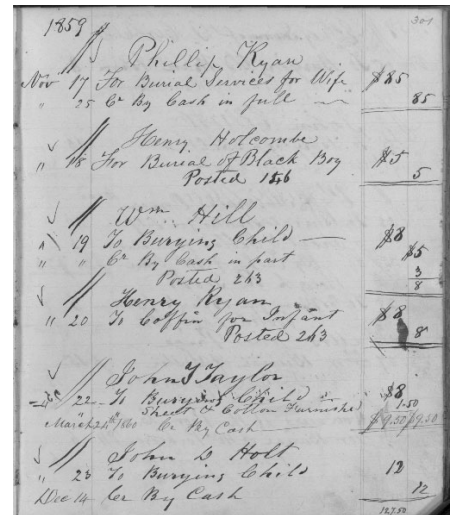 1859
301
Phillip Ryan
Nov 17 For Burial Services for Wife $85
" 25 Cr By Cash in full 85
Henry Holcombe
" 18 For Burial of Black Boy $5
Posted 156 5
Wm Hill
" 19 To Burying Child $8
" " Cr By Cash in part $5
Posted 263 3
8
Henry Ryan
" 20 To Coffin for Infant $8
Posted 263 8
John T Taylor
22 To Burying Child $8
Sheet & Cotton Furnished 1.50
March 24th 1860 Cr By Cash $9.50 $9.50
John D Holt
" 23 To Burying Child 12
Dec 14 Cr By Cash 12
127.50